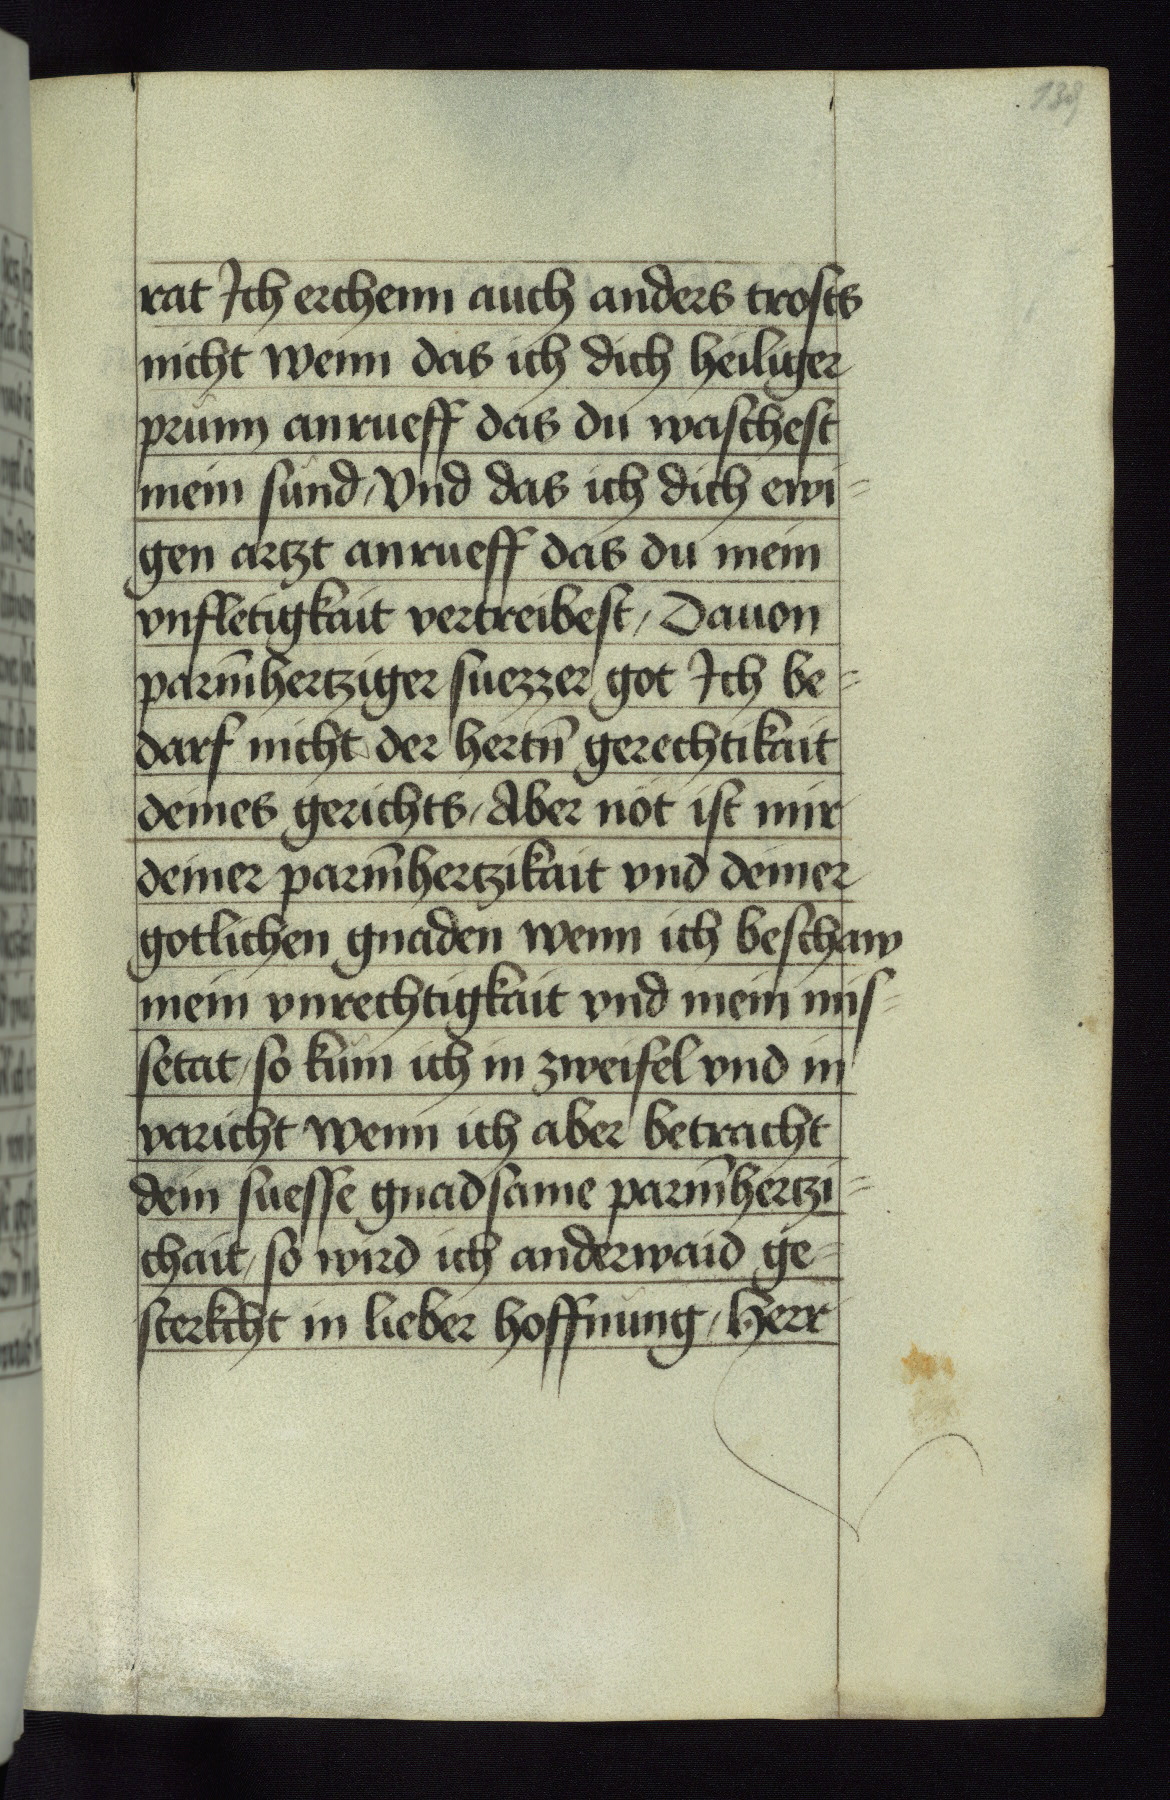 139
rat Ich erchenn auch anders trosts
nicht wenn das ich dich heiliger
prunn anrueff das du waschest
mein sund / Vnd das ich dich ewi=
gen artzt anrueff das du mein
vnfletigkait vertreibest / Dauon
parm̄hertziger suezzer got Ich be=
darf nicht der hertn̄ gerechtikait
deines gerichts / Aber not ist mir
deiner parm̄hertzikait vnd deiner
gotlichen gnaden wenn ich beschaw
mein vnrechtigkait vnd mein mis=
setat / so kum ich in zweifel vnd in
varicht wenn ich aber betracht
dein suesse gnadsame parm̄hertzi=
chait / so wird ich anderwaid ge=
sterkcht in lieber hoffnung / Herr